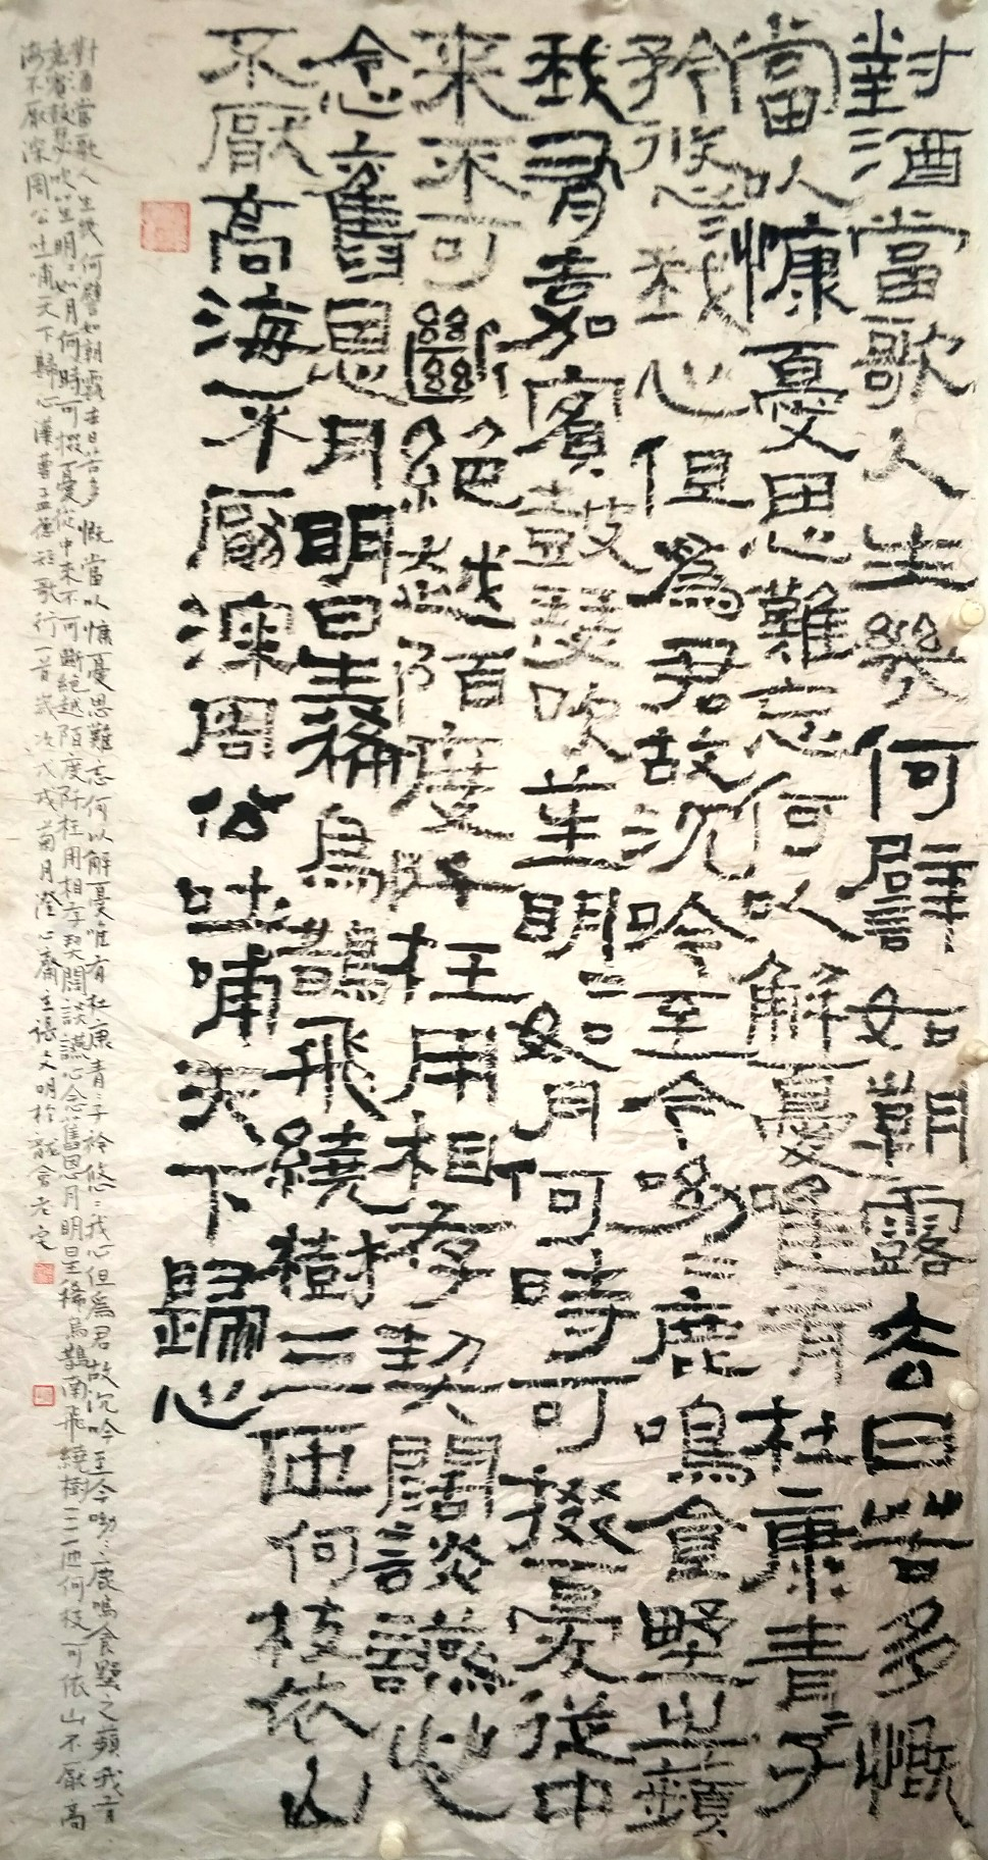 對酒當歌人生幾何譬如朝露去日苦多慨
當以慷憂思難忘何以解憂唯有杜康青〻子
矜悠〻我心但為君故沉吟至今呦〻鹿鳴食野之蘋
我有嘉賓鼓瑟吹笙明〻如月何時可掇憂從中
来不可斷絕越陌度阡枉用相存契闊談讌心
念舊恩月明星稀烏鵲飛繞樹三匝何枝依山
不厭高海不厭深周公吐哺天下歸心
對酒當歌人生幾何譬如朝露去日苦多慨當以慷憂思難忘何以解憂唯有杜康青〻子衿悠〻我心但為君故沉吟至今呦〻鹿鳴食野之蘋我有
嘉賓鼓瑟吹笙明〻如月何時可掇憂從中来不可斷絕越陌度阡枉用相存契闊談讌心念舊恩月明星稀烏鵲南飛繞樹三匝何枝可依山不厭高
海不厭深周公吐哺天下歸心漢曹孟德短歌行一首歲次戊戌菊月澄心齋主張文明於老宅